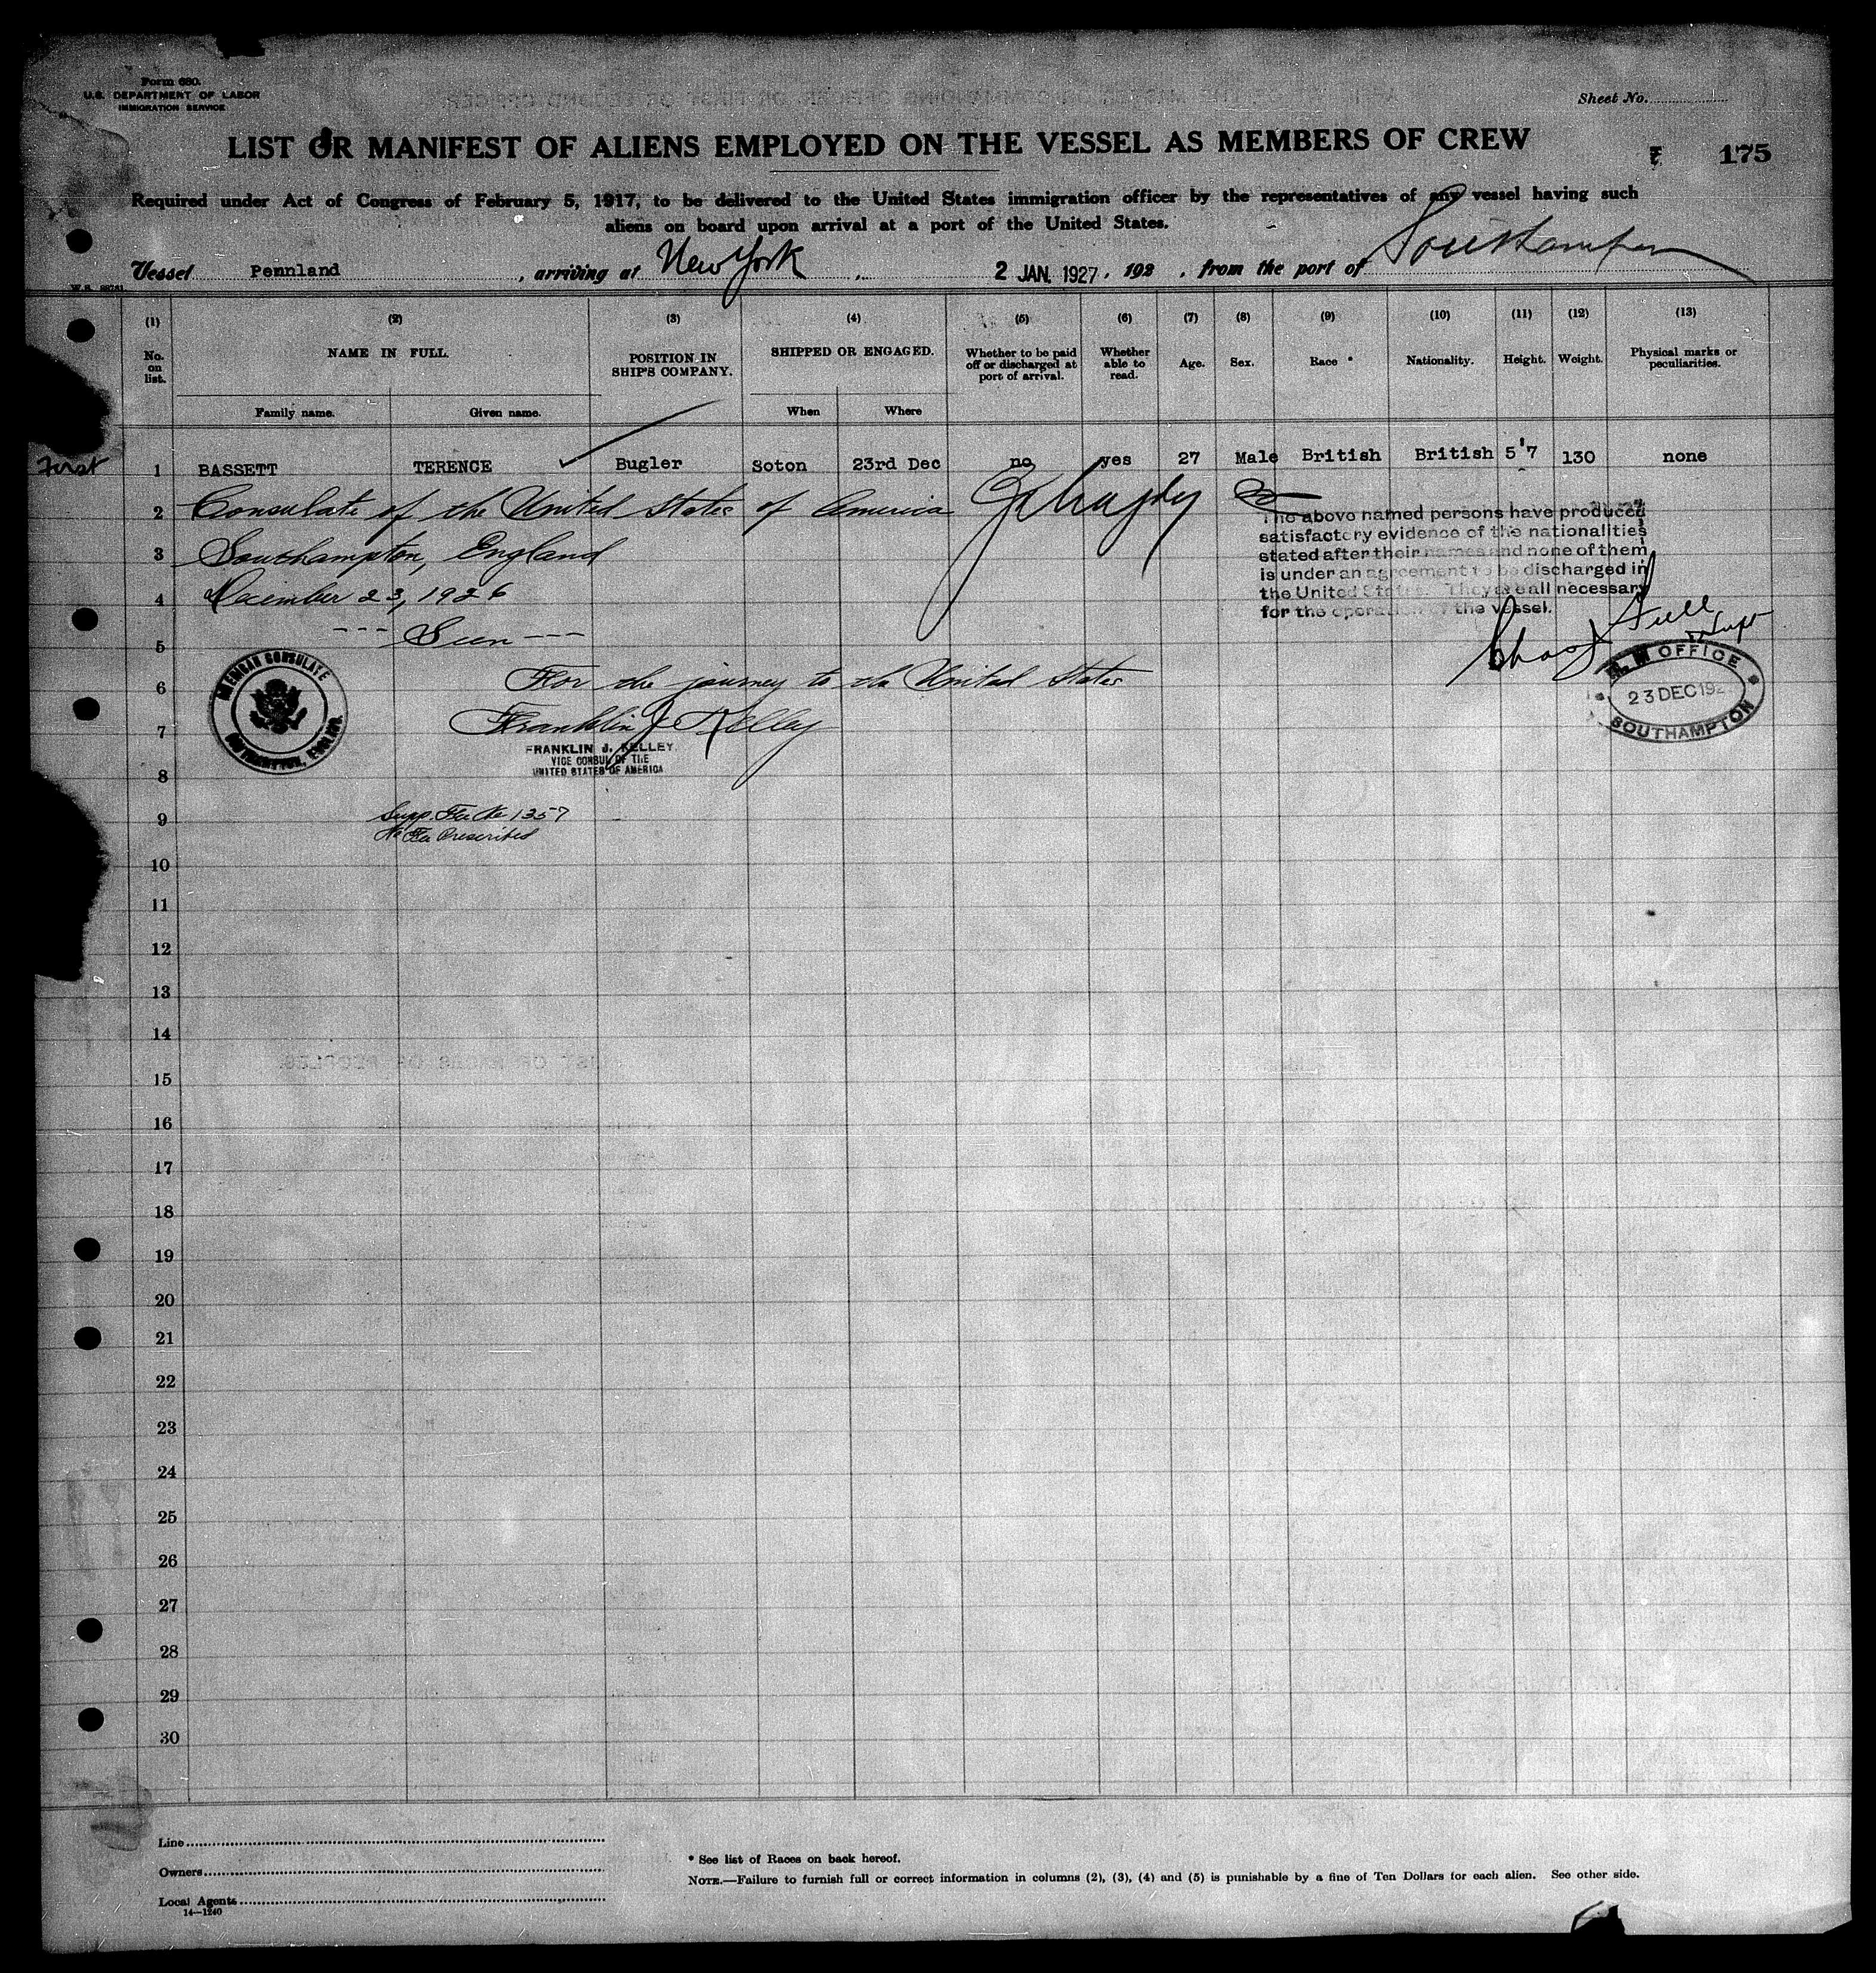 Form 680.
U.S. DEPARTMENT OF LABOR
IMMIGRATION SERVICE
Sheet No.
LIST OR MANIFEST OF ALIENS EMPLOYED ON THE VESSEL AS MEMBERS OF CREW
175
Required under Act of Congress of February 5, 1917, to be delivered to the United States immigration officer by the representatives of any vessel having such
aliens on board upon arrival at a port of the United States.
Vessel Pennland, arriving at New York, 2 JAN. 1927, 192 , from the port of Southampton
(1) (2) (3) (4) (5) (6) (7) (8) (9) (10) (11) (12) (13)
No. on list. NAME IN FULL. POSITION IN SHIP'S COMPANY. SHIPPED OR ENGAGED. Whether to be paid off or discharged at port of arrival. Whether able to read. Age. Sex. Race * Nationality. Height. Weight. Physical marks or peculiarities.
Family name. Given name. When Where
First 1 BASSETT TERENCE Bugler Soton 23rd Dec no yes 27 Male British British 5'7 130 none
2 Consulate of the United States of America
The above named persons have produced
satisfactory evidence of the nationalities
3 Southampton, England
stated after their names and none of them
is under an agreement to be discharged in
4 December 23, 1926
the United States. They are all necessary
for the operation of the vessel.
5 --- Seen ---
AMERICAN CONSULATE
SOUTHAMPTON, ENGLAND
6 For the journey to the United States
OFFICE
23 DEC 192
SOUTHAMPTON
7 Franklin J. Kelley
FRANKLIN J. KELLEY.
VICE CONSUL OF THE
UNITED STATES OF AMERICA
8
9 Supp. Fee No 1357
No Fee Prescribed
10
11
12
13
14
15
16
17
18
19
20
21
22
23
24
25
26
27
28
29
30
Line
Owners
Local Agents
14—1240
* See list of Races on back hereof.
NOTE.—Failure to furnish full or correct information in columns (2), (3), (4) and (5) is punishable by a fine of Ten Dollars for each alien. See other side.